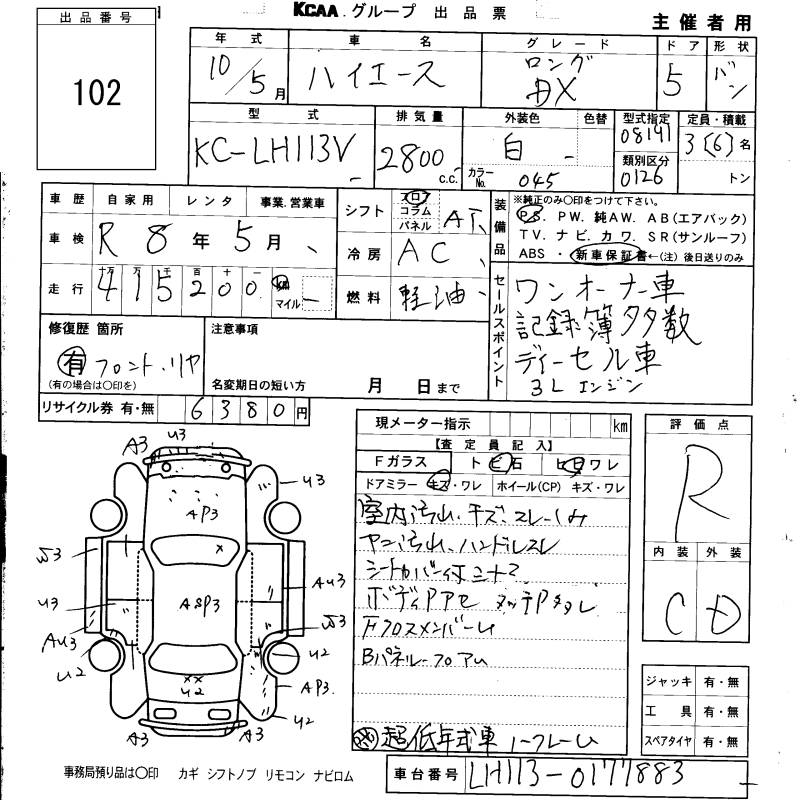 KCAA.グループ 出品票
主催者用
出品番号
102
年式 車名 グレード ドア 形状
10/5月 ハイエース ロング DX 5 バン
型式 排気量 外装色 色替 型式指定 定員・積載
KC-LH113V 2800c.c. 白 - 08141 3(6)名
カラーNo. 045 類別区分 0126 トン
車歴 自家用 レンタ 事業.営業車
シフト フロア コラム パネル AT
装備品
※純正のみ〇印をつけて下さい。
PS. PW. 純AW. AB(エアバック)
TV. ナビ. カワ. SR(サンルーフ)
ABS ・ 新車保証書←(注)後日送りのみ
車検 R8年5月
冷房 AC
走行 十万 万 千 百 十 一
415200 マイル
燃料 軽油
セールスポイント
ワンオーナー車
記録簿多数
ディーゼル車
3Lエンジン
修復歴 箇所
有 フロント.リヤ
(有の場合は〇印を)
注意事項
名変期日の短い方 月 日まで
リサイクル券 有・無 6380円
現メーター指示 km
【査定員記入】
Fガラス ト ビ 石 ヒビ ワレ
ドアミラー キズ・ワレ ホイール(CP) キズ・ワレ
室内汚れ.キズ.スレ.しみ
ヤニ汚れ、ハンドルスレ
シートカバー付
ボディ
Fクロスメンバー
Bパネル-フロア
超低年式車
評価点
R
内装 外装
C D
ジャッキ 有・無
工具 有・無
スペアタイヤ 有・無
A3 U3
U3
AP3
U3
AU3
ASP3
U3
AU3
U2
U2
U2
AP3.
U2
A3 A3
事務局預り品は〇印 カギ シフトノブ リモコン ナビロム
車台番号 LH113-0177883